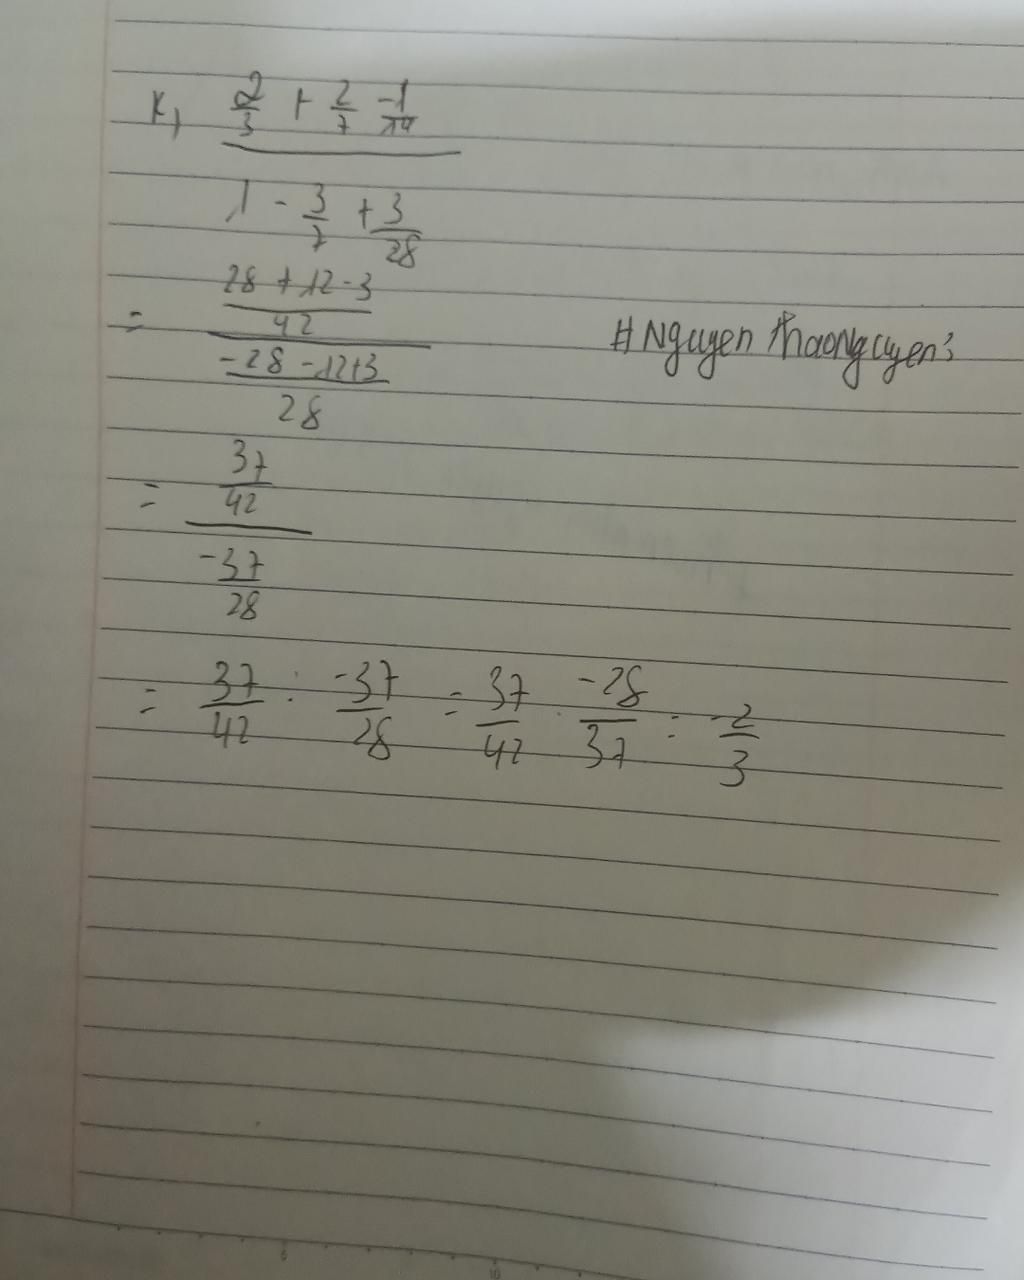 K, 2/3 + 2/7 - 1/14
1 - 3/7 + 3/28
= 28 + 12 - 3
42
- 28 - 12 + 3
28
#Nguyen thaoNguyen:
= 37/42
-37/28
= 37/42 : -37/28 = 37/42 . -28/37 = -2/3
5
10